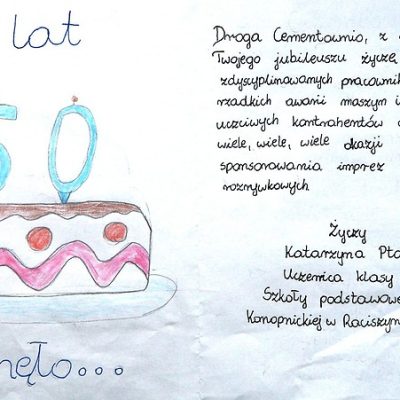 lat
50
nęło...
Droga Cementownio, z
Twojego jubileuszu życzę
zdyscyplinowanych pracowni
rzadkich awarii maszyn i
uczciwych kontrahentów
wiele, wiele, wiele okazji
sponsorowania imprez
rozrywkowych
Życzy
Katarzyna Pta
Uczennica klasy
Szkoły podstawowe
Konopnickiej w Raciszyn